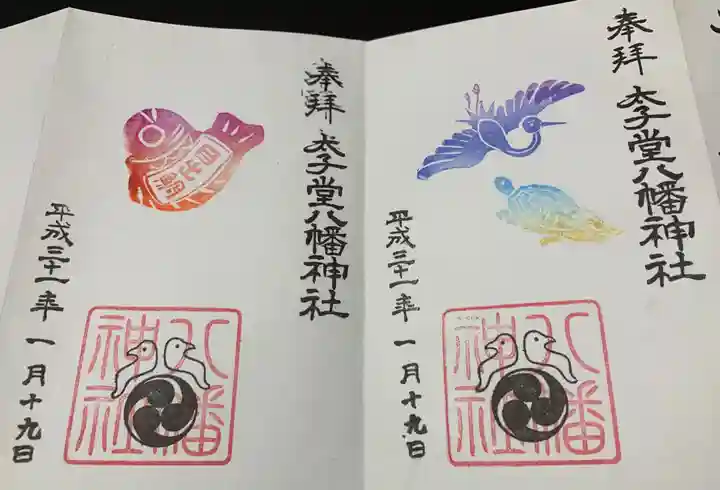 奉拝 太子堂八幡神社
平成三十一年 一月十九日
目出鯛
八幡
神社
奉拝 太子堂八幡神社
平成三十一年 一月十九日
八幡
神社